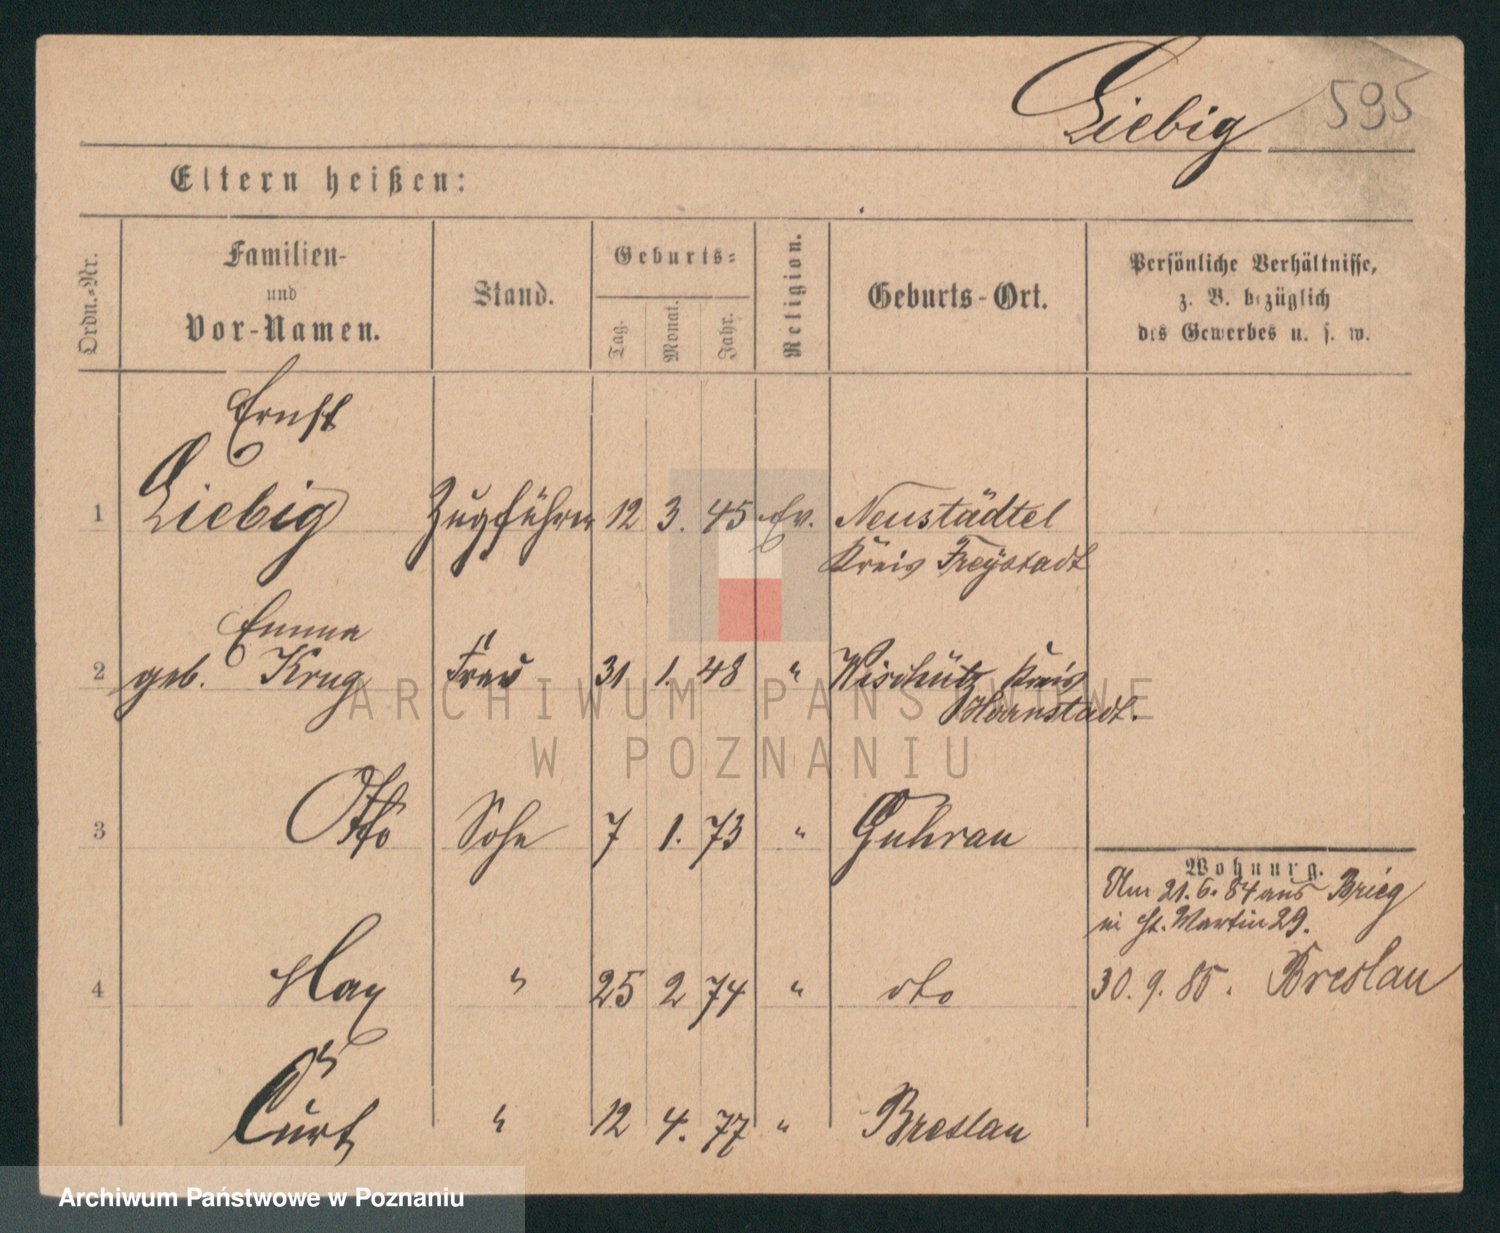 Liebig 595
Eltern heißen:
Ordn.-Nr.
Familien-
und
Vor-Namen.
Stand.
Geburts-
Tag.
Monat.
Jahr.
Religion.
Geburts-Ort.
Persönliche Verhältnisse,
z. B. bezüglich
des Gewerbes u. s. w.
Ernst
1 Liebig Zugführer 12 3. 45 Ev. Neustädtel
Kreis Freystadt
Emma
2 geb. Krug Frau 31 1. 48 " Wischütz Kreis
Herrnstadt.
3 Otto Sohn 7 1. 73 " Guhrau
Wohnung.
Am 21.6.84 aus Brieg
in St. Martin 29.
4 Max " 25 2 74 " dto 30.9.85. Breslau
5
Curt " 12 4. 77 " Breslau
ARCHIWUM PAŃSTWOWE
W POZNANIU
Archiwum Państwowe w Poznaniu